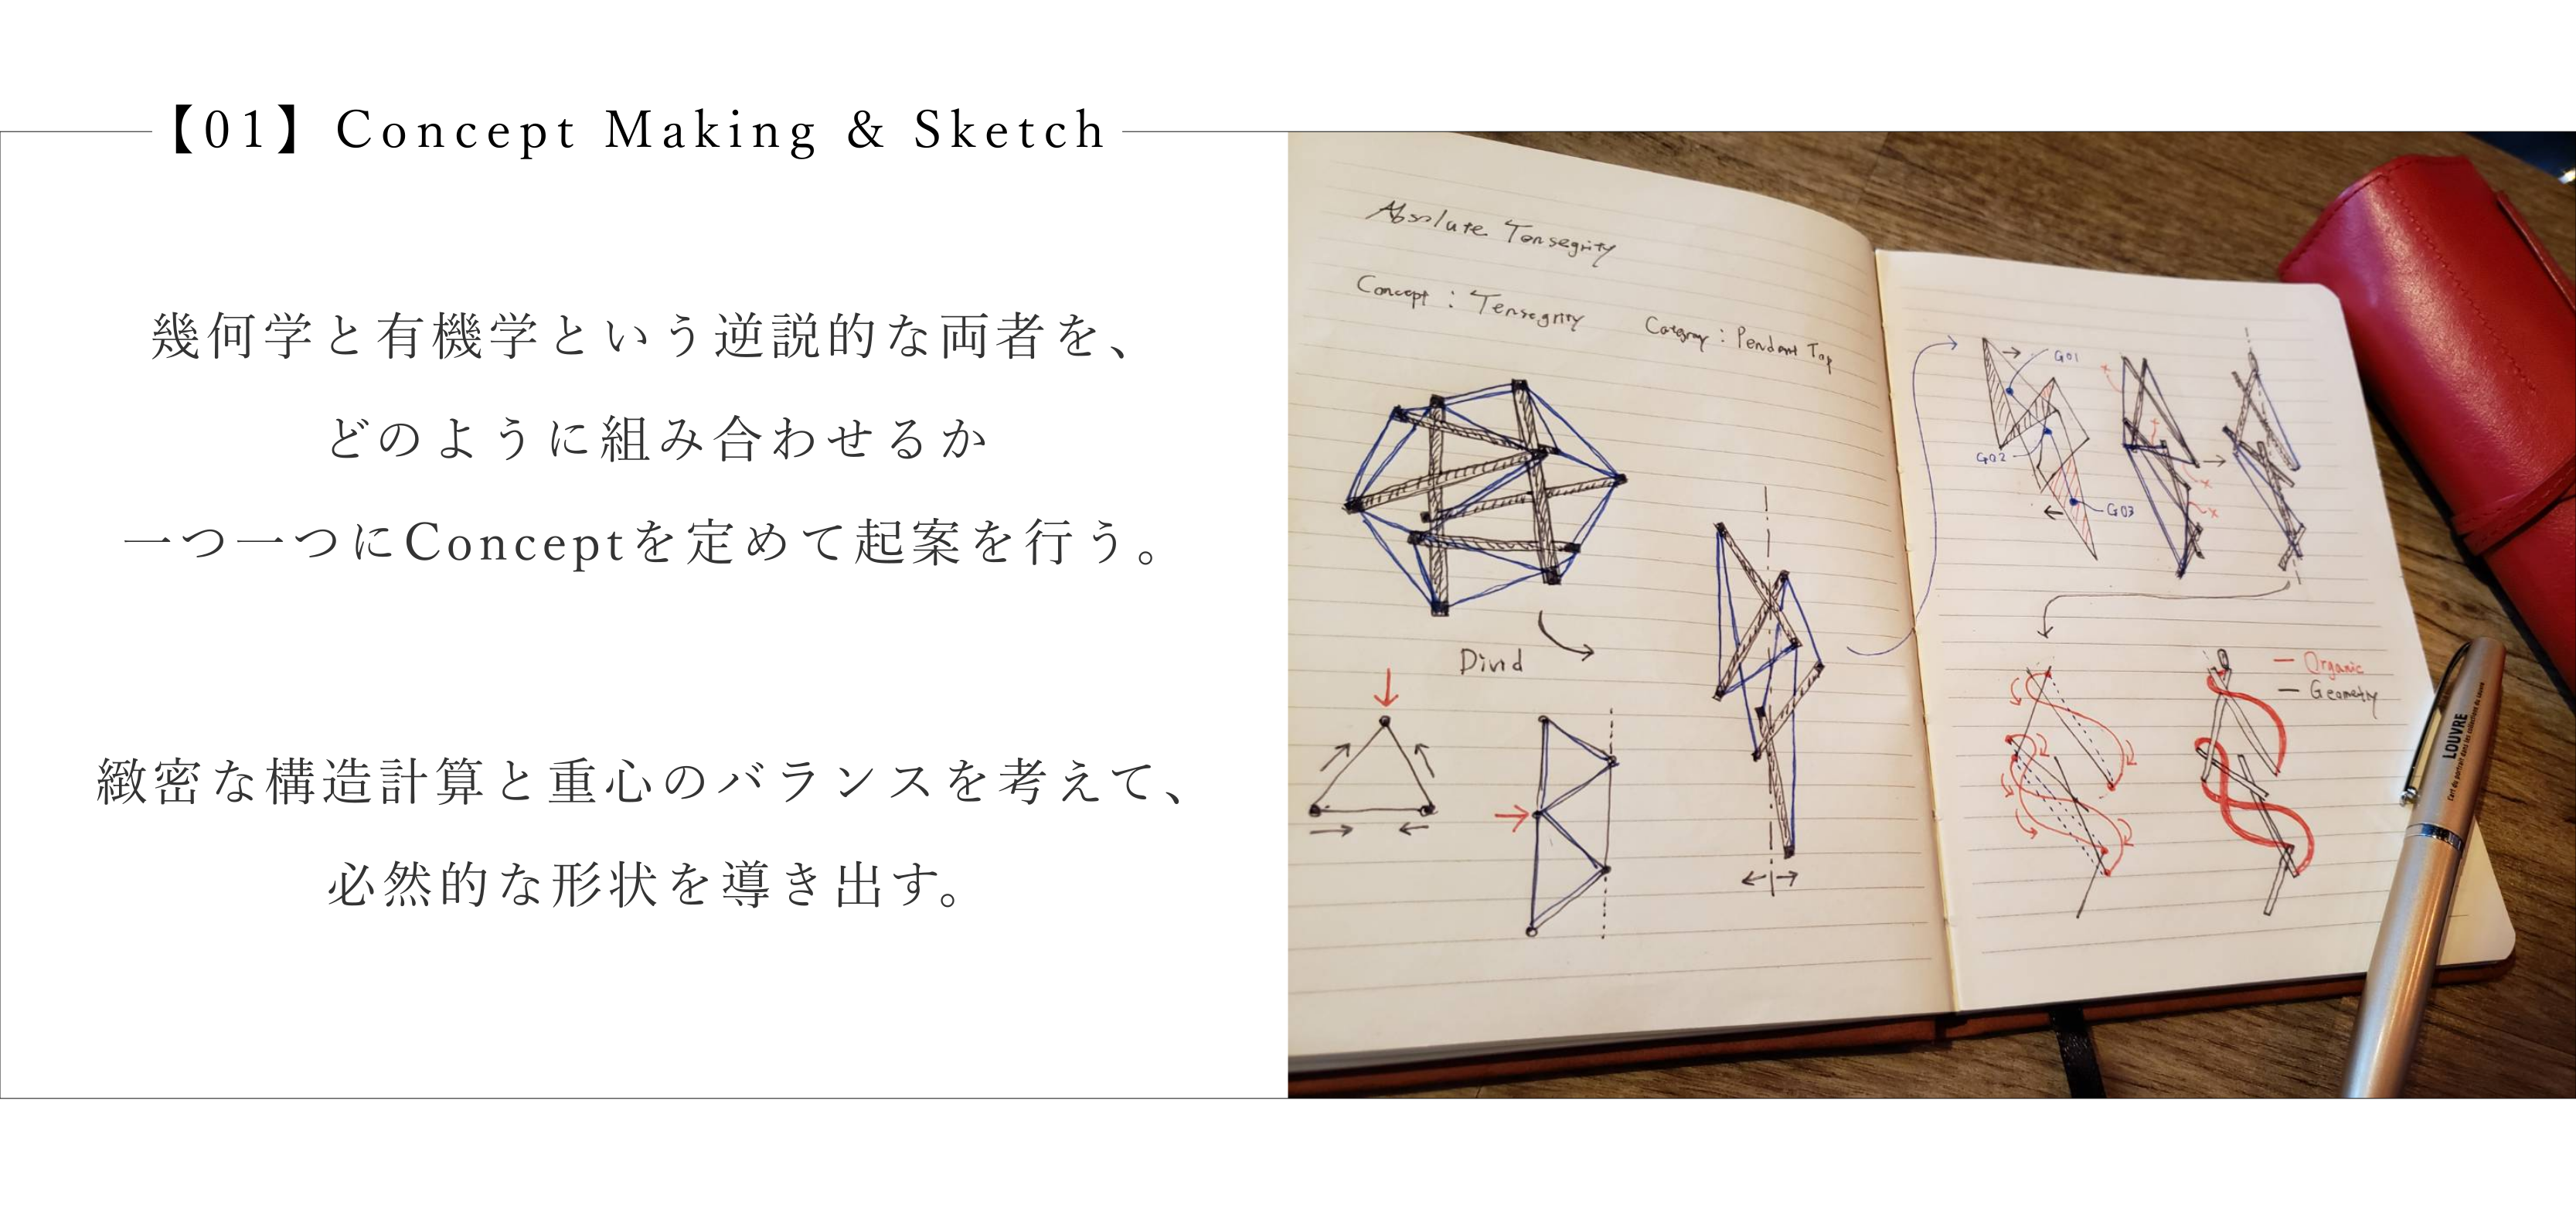 【01】Concept Making & Sketch
幾何学と有機学という逆説的な両者を、
どのように組み合わせるか
一つ一つにConceptを定めて起案を行う。
緻密な構造計算と重心のバランスを考えて、
必然的な形状を導き出す。
Absolute Tensegrity
Concept : Tensegrity
Category : Pendant Top
Divid
G01
G02
G03
Organic
Geometry
LOUVRE